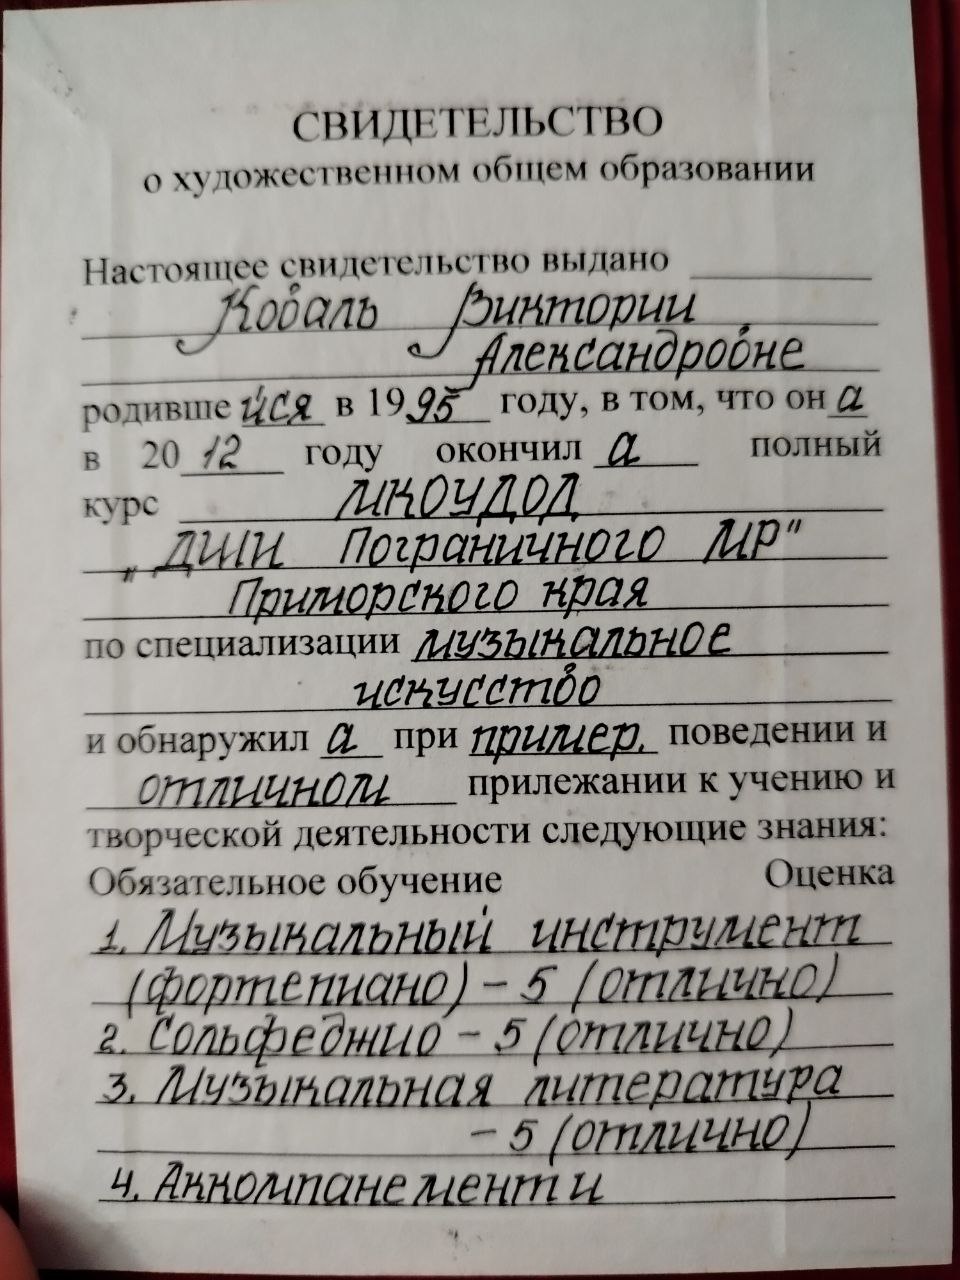 СВИДЕТЕЛЬСТВО
о художественном общем образовании
Настоящее свидетельство выдано
Коваль Виктории
Александровне
родивше йся в 1995 году, в том, что он а
в 2012 году окончил а полный
курс МКОУДОД
"ДШИ Пограничного МР"
Приморского края
по специализации музыкальное
искусство
и обнаружил а при пример. поведении и
отличном прилежании к учению и
творческой деятельности следующие знания:
Обязательное обучение Оценка
1. Музыкальный инструмент
(фортепиано) – 5 (отлично)
2. Сольфеджио – 5 (отлично)
3. Музыкальная литература
– 5 (отлично)
4. Аккомпанемент и